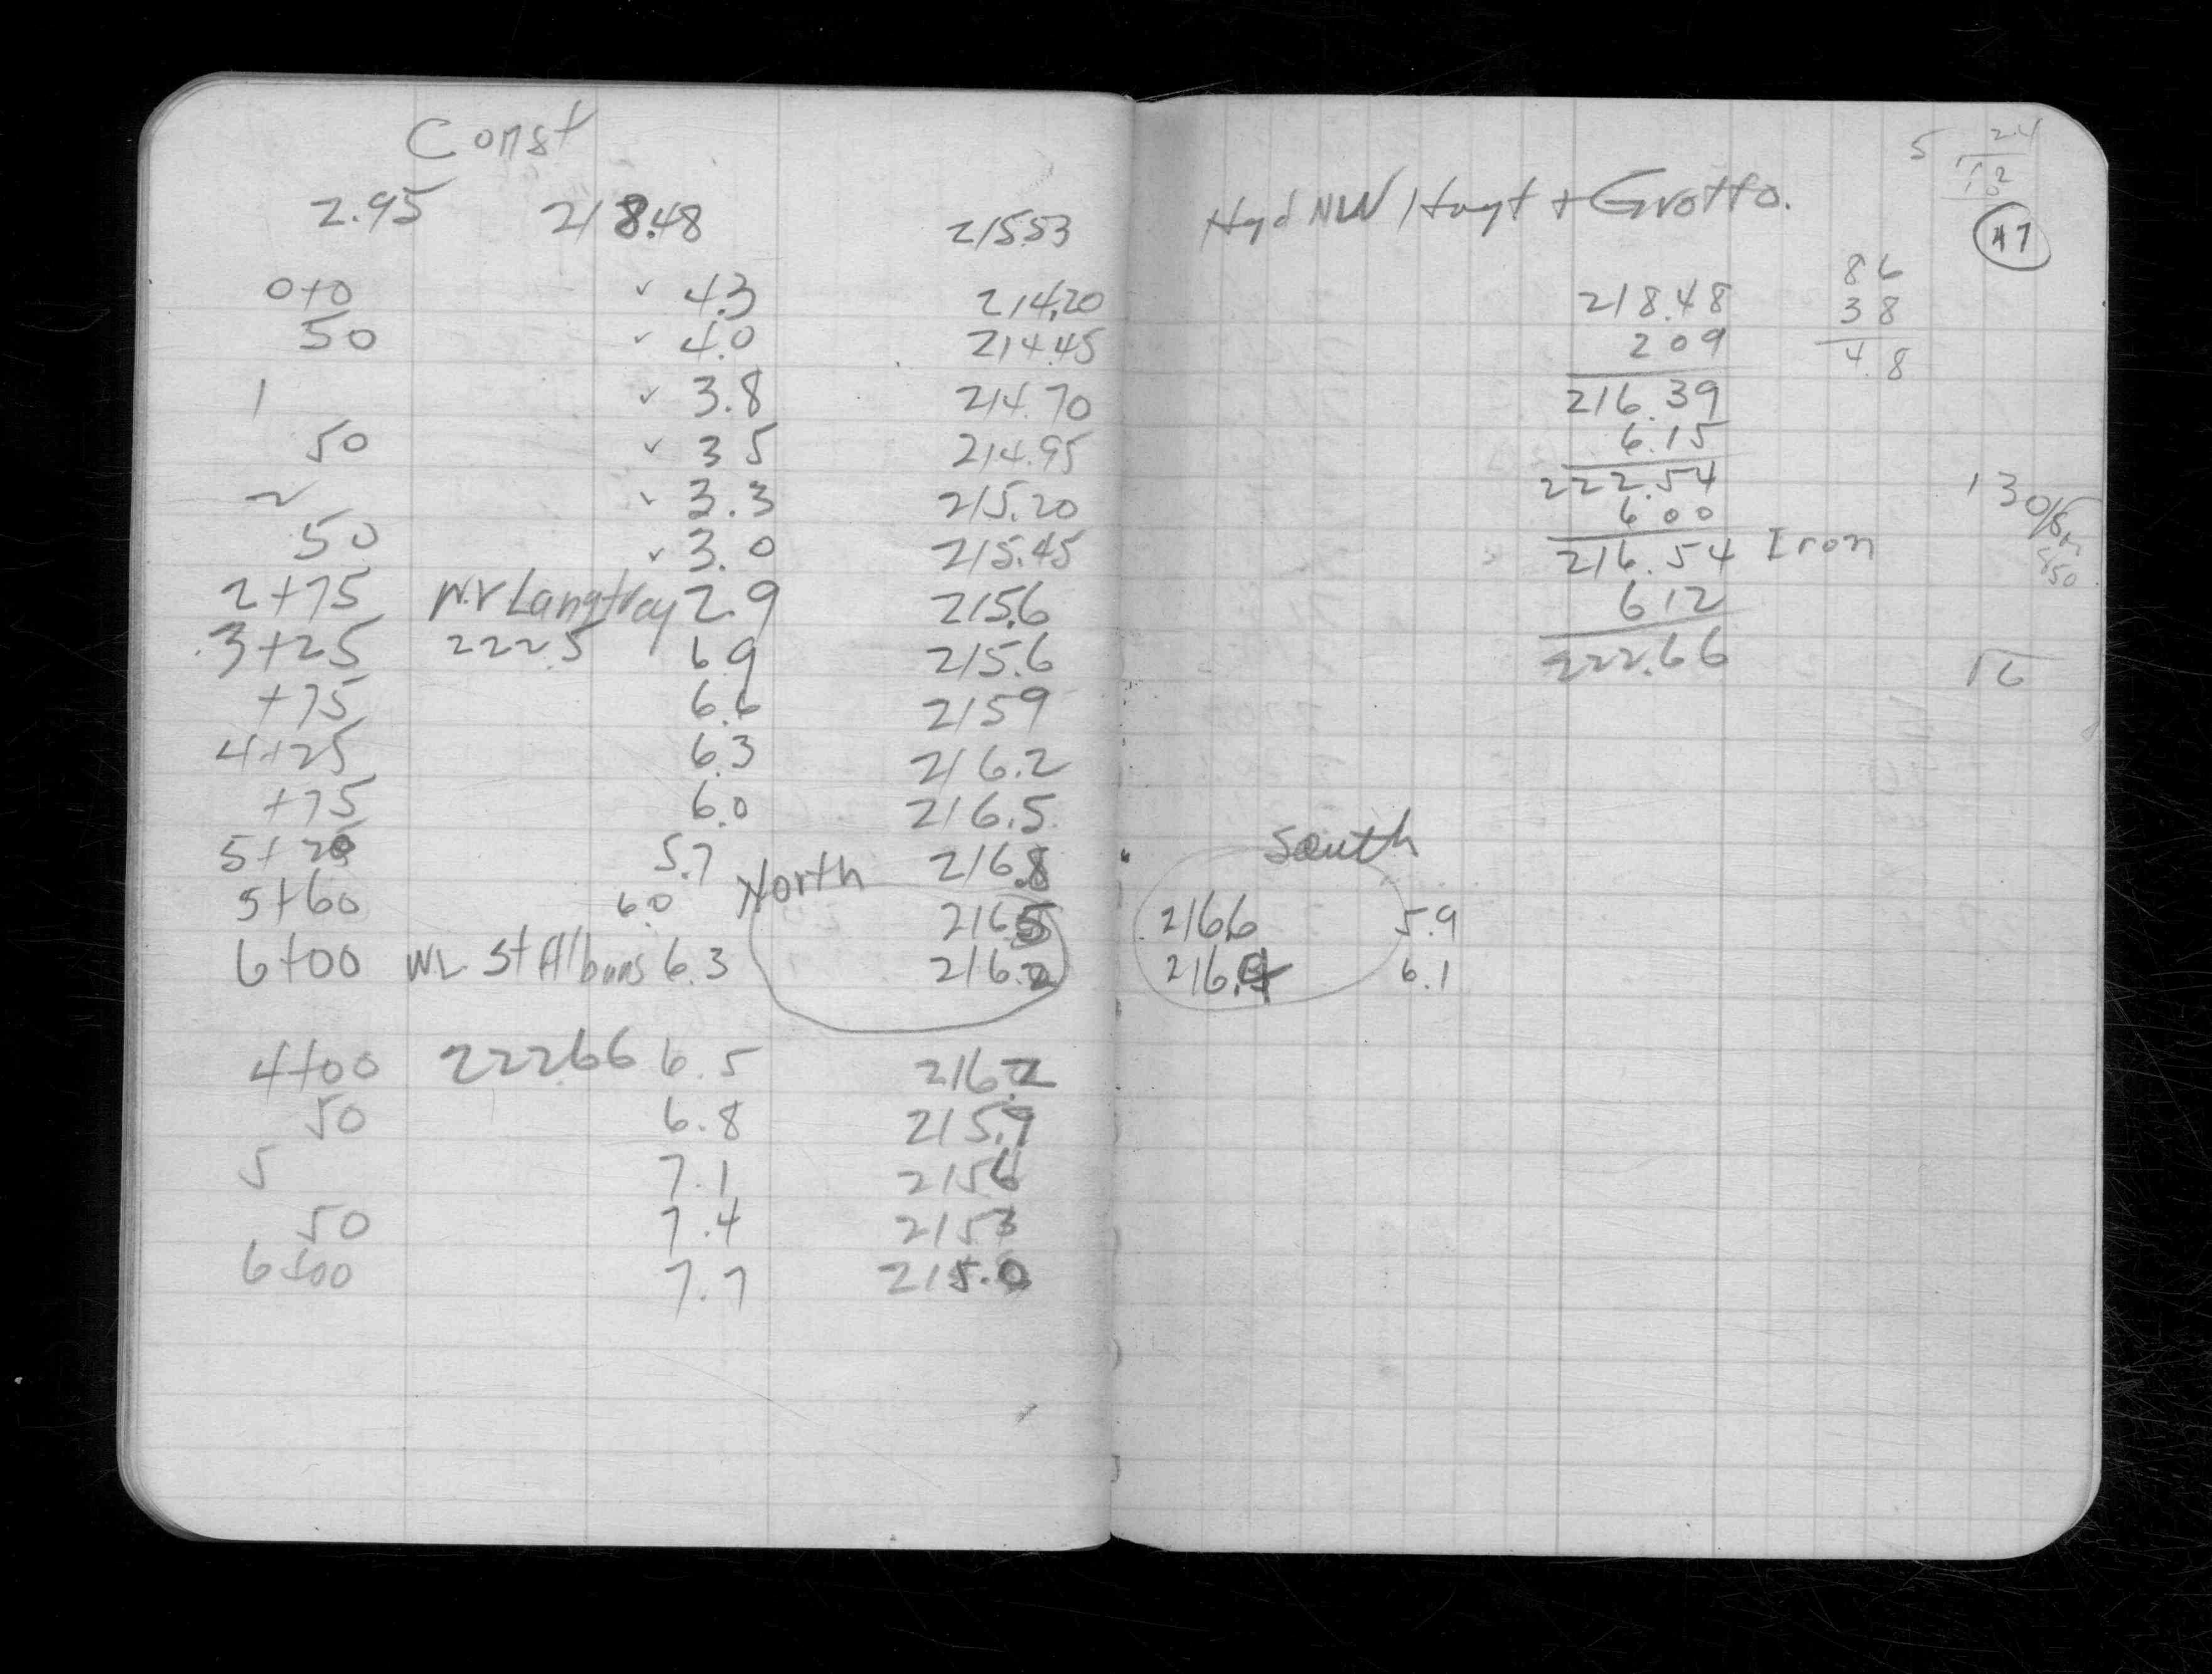 Const
2.95 218.48 215.53
0+0 ✓ 4.3 214.20
50 ✓ 4.0 214.45
1 ✓ 3.8 214.70
50 ✓ 3.5 214.95
2 ✓ 3.3 215.20
50 ✓ 3.0 215.45
2+75 2.9 215.6
3+25 222.5 6.9 215.6
+75 6.6 215.9
4+25 6.3 216.2
+75 6.0 216.5
5.7 216.8
North
5+60 6.0 216.5
6+00 WL St Albans 6.3 216.2
4+00 222.66 6.5 216.2
50 6.8 215.9
5 7.1 215.6
50 7.4 215.3
6+00 7.7 215.0
Hyd NW Hoyt + Grotto.
47
218.48
2 09
216.39
6.15
222.54
6 00
216.54 Iron
6 12
222.66
86
38
4.8
5 24
130
16
South
216.6 5.9
216.4 6.1